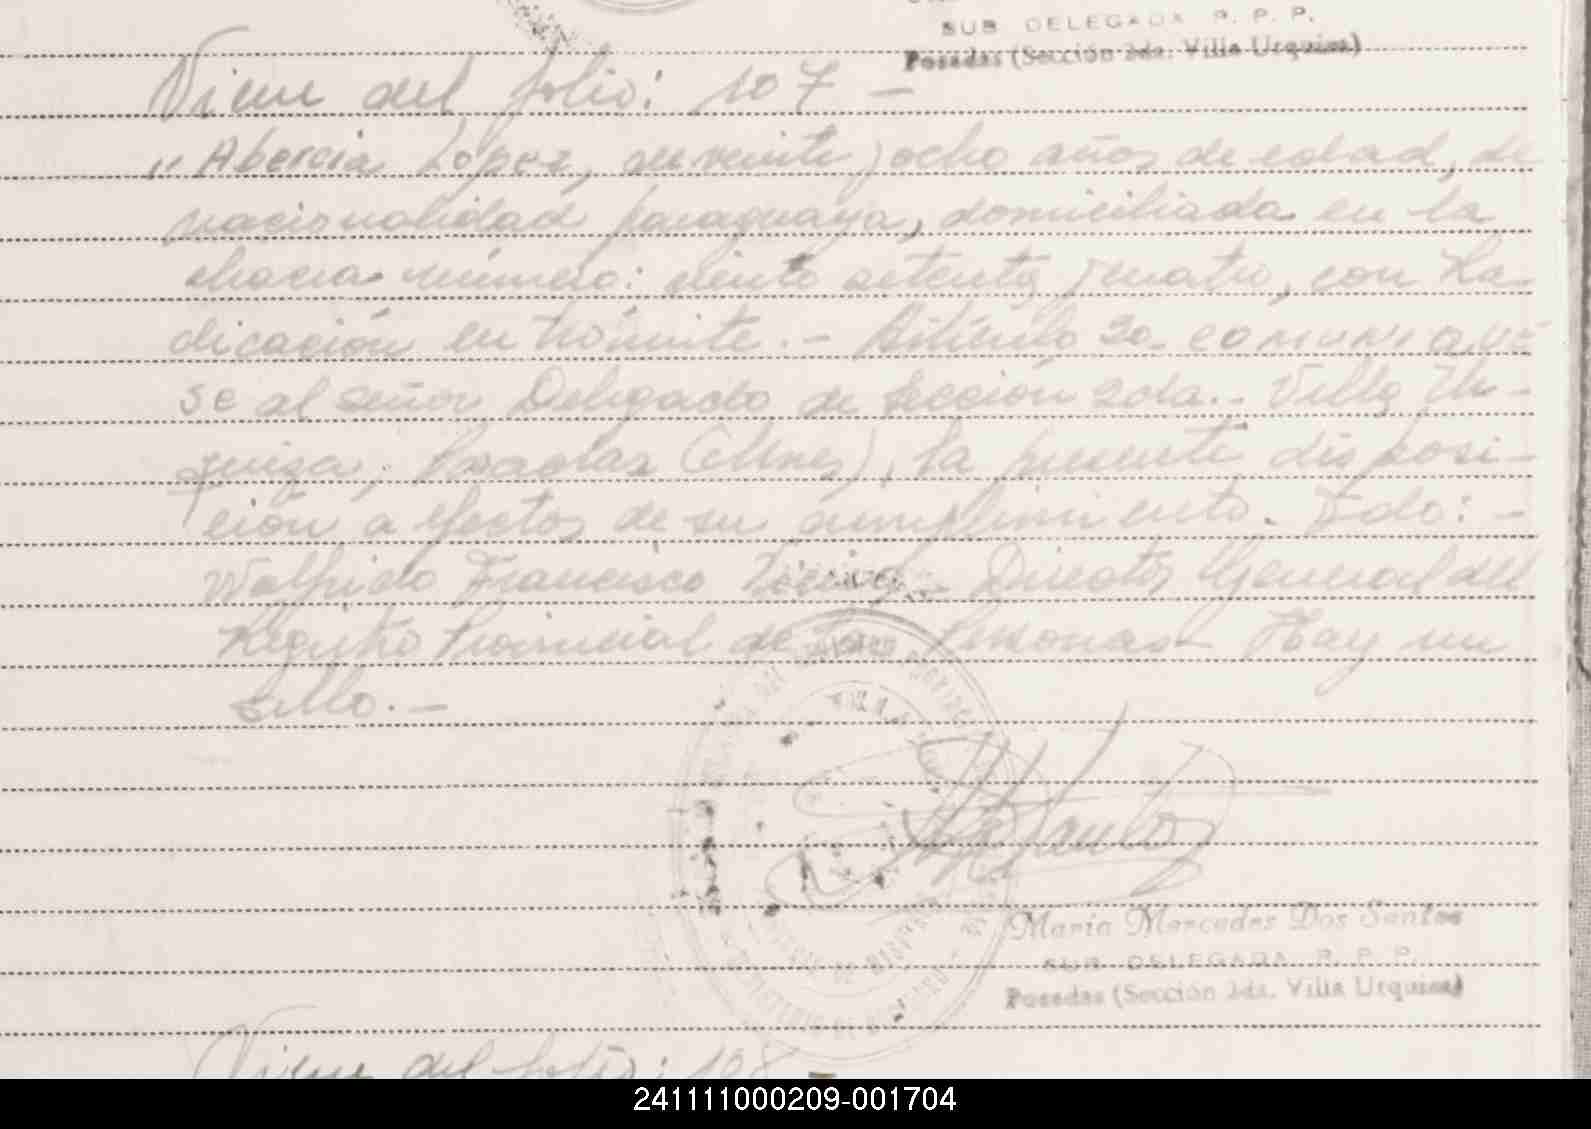 SUB DELEGADA R. P. P.
Posadas (Sección 2da. Villa Urquiza)
Viene del folio: 107 —
" Abercia López, de veinte y ocho años de edad, de
nacionalidad paraguaya, domiciliada en la
chacra número: ciento setenta y cuatro, con Ra-
dicación en trámite.- Artículo 2o. comuníque
se al señor Delegado de Sección 2da.- Villa Ur-
quiza, Posadas (Mnes), la presente disposi-
ción a efectos de su cumplimiento. Fdo: -
Walfrido Francisco Director General del
Registro Provincial de las Personas- Hay un
sello.-
María Mercedes Dos Santos
SUB DELEGADA R. P. P.
Posadas (Sección 2da. Villa Urquiza)
Viene del folio: 108
241111000209-001704